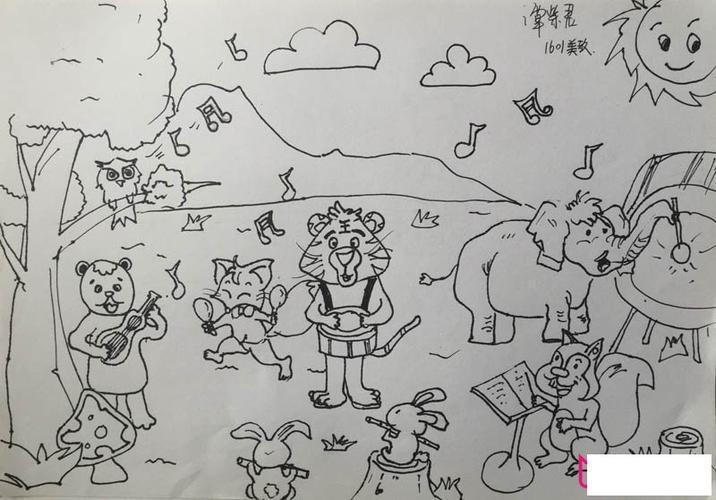 谭紫君
1601美教.
王